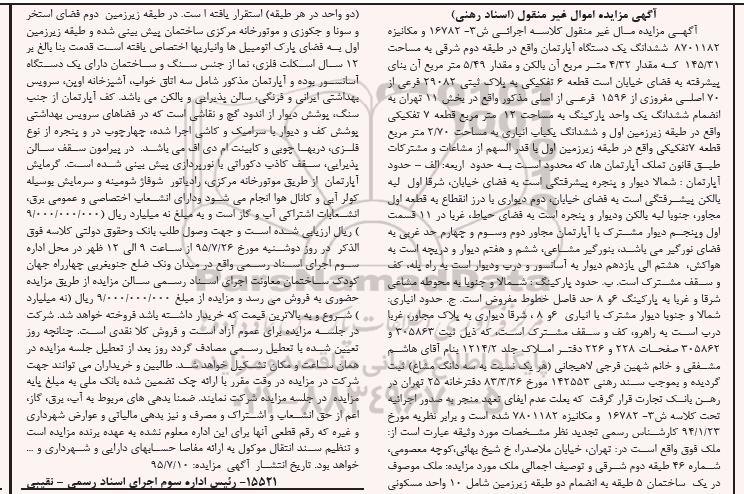 آگهی مزایده اموال غیر منقول (اسناد رهنی)
آگهـی مزایده مـال غیر منقول کلاسـه اجرائـی ش۳- ۱۶۷۸۲ و مکانیزه
۸۷۰۱۱۸۲ ششدانگ یک دستگاه آپارتمان واقع در طبقه دوم شرقی به مساحت
۱۴۵/۳۱ کـه مقدار ۴/۳۲ متـر مربع آن بالکن و مقدار ۵/۴۹ متر مربع آن بنای
پیشرفته به فضای خیابان است قطعه ۶ تفکیکی به پلاک ثبتی ۲۹۰۸۲ فرعی از
۷۰ اصلـی مفروزی از ۱۵۹۶ فرعـی از اصلی مذکور واقع در بخش ۱۱ تهران به
انضمام ششدانگ یک واحد پارکینگ به مساحت ۱۲ متر مربع قطعه ۷ تفکیکی
واقع در طبقه زیرزمین اول و ششدانگ یکباب انباری به مساحت ۲/۷۰ متر مربع
قطعه ۷تفکیکی واقع در طبقه زیرزمین اول با قدر السهم از مشاعات و مشترکات
طبـق قانون تملک آپارتمان ها، که محدود است به حدود اربعه: الف – حدود
آپارتمان : شمالا دیوار و پنجره پیشرفتگی است به فضای خیابان، شرقا اول لبه
بالکن پیشـرفتگی است به فضای خیابان، دوم دیواری با درز انقطاع به قطعه اول
مجاور، جنوبا لبه بالکن ودیوار و پنجره است به فضای حیاط، غربا در ۱۱ قسمت
اول وپنجـم دیوار مشـترک با آپارتمان مجاور دوم وسـوم و چهارم حد غربی به
فضای نورگیر می باشـد، بنورگیر مشـاعی، ششم و هفتم دیوار و دریچه است به
هواکش، هشتم الی یازدهم دیوار به آسانسور و درب ودیوار است به راه پله، کف
و سـقف مشـترک است. ب. حدود پارکینگ : شـمالا و جنوبا به محوطه مشاعی
شرقا و غربا به پارکینگ ۶و ۸ حد فاصل خطوط مفروض است. ج. حدود انباری:
شمالا و جنوبا دیوار مشترک با انباری ۶و ۸ ، شرقا دیواری به پلاک مجاور، غربا
درب است به راهرو، کف و سـقف مشـترک است، که ذیل ثبت ۳۰۵۸۶۳ و
۳۰۵۸۶۲ صفحـات ۲۲۸ و ۲۲۶ دفتـر امـلاک جلد ۱۲۱۴/۲ بنام آقای هاشـم
مشـفقی و خانم شهین قرجی لاهیجانی (هر یک نسبت به سه دانگ مشاع) ثبت
گردیده و بموجب سـند رهنی ۱۴۲۵۵۳ مورخ ۸۳/۳/۲۶ دفترخانه ۲۵ تهران در
رهـن بانـک تجارت قرار گرفت که بعلت عدم ایفای تعهد منجر به صدور اجرائیه
تحت کلاسه ش۳- ۱۶۷۸۲ و مکانیزه ۷۸۰۱۱۸۲ شده است و برابر نظریه مورخ
۹۴/۱/۲۳ کارشـناس رسمی تجدید نظر مشـخصات مورد وثیقه عبارت است از:
ملک فوق واقع است در: تهران، خیابان ملاصدرا، خ شیخ بهائی،کوچه معصومی،
شـماره ۴۶ طبقه دوم شـرقی و توصیف اجمالی ملک مورد مزایده: ملک موصوف
در یـک سـاختمان ۵ طبقه به انضمام دو طبقه زیرزمین شامل ۱۰ واحد مسکونی
(دو واحد در هر طبقه) استقرار یافته ا ست. در طبقه زیرزمین دوم فضای استخر
و سونا و جکوزی و موتورخانه مرکزی ساختمان پیش بینی شده و طبقه زیرزمین
اول بـه فضای پارک اتومبیل ها وانباریها اختصاص یافته است قدمت بنا بالغ بر
۱۲ سـال اسـکلت فلزی، نما از جنس سـنگ و ساختمان دارای یک دستگاه
آسانسور بوده و آپارتمان مذکور شامل سه اتاق خواب، آشپزخانه اوپن، سرویس
بهداشتی ایرانی و فرنگی، سالن پذیرایی و بالکن می باشد. کف آپارتمان از جنب
سنگ، پوشش دیوار از اندود گچ و نقاشی است که در فضاهای سرویس بهداشتی
پوشش کف و دیوار با سرامیک و کاشی اجرا شده، چهارچوب در و پنجره از نوع
فلـزی، دربهـا چوبی و کابینت ام دی اف می باشـد. در پیرامون سـقف سـالن
پذیرایی، سـقف کاذب دکوراتی با نورپردازی پیش بینی شـده است. گرمایش
آپارتمان از طریق موتورخانه مرکزی، رادیاتور شوفاژ شومینه و سرمایش بوسیله
کولر آبی و کانال هوا انجام می شـود ودارای انشـعاب اختصاصی و عمومی برق،
انشـعابات اشتراکی آب و گاز است و به مبلغ نه میلیارد ریال (۹/۰۰۰/۰۰۰/۰۰۰
) ریال ارزیابی شـده است و جهت وصول طلب بانک وحقوق دولتی کلاسه فوق
الذکر در روز دوشـنبه مورخ ۹۵/۷/۲۶ از ساعت ۹ الی ۱۲ ظهر در محل اداره
سـوم اجرای اسـناد رسـمی واقع در میدان ونک ضلع جنوبغربی چهارراه جهان
کودک ساختمان معاونت اجرای اسـناد رسـمی سـالن مزایده از طریق مزایده
حضوری به فروش می رسد و مزایده از مبلغ ۹/۰۰۰/۰۰۰/۰۰۰ ریال (نه میلیارد
) شـروع و به بالاترین قیمت که خریدار داشـته باشد فروخته خواهد شد. شرکت
در جلسـه مزایده برای عموم آزاد است و فروش کلا نقدی است. چنانچه روز
تعیین شـده با تعطیل رسـمی مصادف گردد روز بعد از تعطیل جلسه مزایده در
همان سـاعت و مکان تشـکیل خواهد شـد. طالبین و خریداران می توانند جهت
شرکت در مزایده در وقت مقرر با ارائه چک تضمین شده بانک ملی به مبلغ پایه
مزایده در جلسه مزایده شرکت نمایند. ضمنا بدهی های مربوط به آب، برق، گاز،
اعم از حق انشـعاب و اشـتراک و مصرف و نیز بدهی مالیاتی و عوارض شهرداری
و غیره که رقم قطعی آنها برای این اداره معلوم نشده به عهده برنده مزایده است
و تنظیم سـند انتقال موکول به ارائه مفاصا حسـابهای دارایی و شـهرداری و ...
خواهد بود. تاریخ انتشـار آگهی مزایده: ۹۵/۷/۱۰
۱۵۵۲۱- رئیس اداره سوم اجرای اسناد رسمی – نقیبی